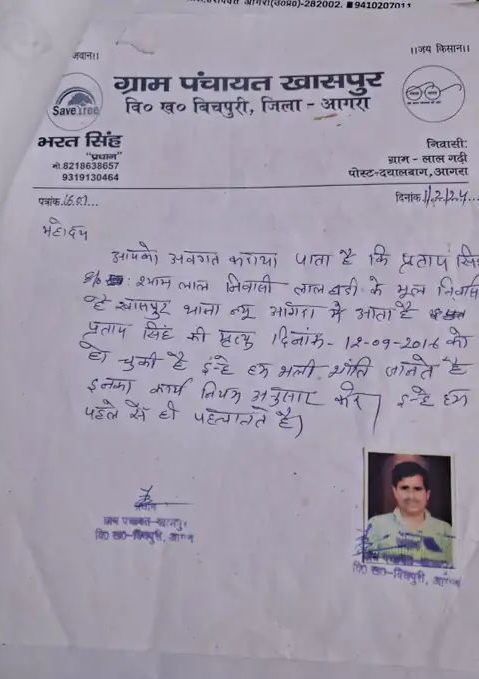 आगरा(उ०प्र०)-282002. 9410207011
जवान।।
।।जय किसान।।
Save Tree
ग्राम पंचायत खासपुर
वि० ख० बिचपुरी, जिला - आगरा
भरत सिंह
"प्रधान"
मो.8218638657
9319130464
निवासी:
ग्राम - लाल गढी
पोस्ट-दयालबाग, आगरा
पत्रांक
दिनांक 1/2/24
महोदय
आपको अवगत कराया जाता है कि प्रताप सिं
S/o श्याम लाल निवासी लाल गढी के मूल निवासी
है खासपुर थाना न्यू आगरा में आता है
प्रताप सिंह की मृत्यु दिनांक - 12-09-2016 को
हो चुकी है इन्हे हम भली भाँति जानते है
इनका कार्य नियम अनुसार करें इन्हे हम
पहले से ही पहचानते है
प्रधान
ग्राम पंचायत-खासपुर
वि० ख०-बिचपुरी, आगरा
ग्राम पंचायत-खासपुर
वि० ख०-बिचपुरी, आगरा